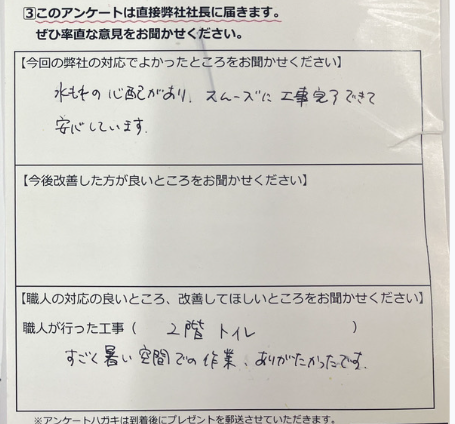 ③このアンケートは直接弊社社長に届きます。
ぜひ率直な意見をお聞かせください。
【今回の弊社の対応でよかったところをお聞かせください】
水もれの心配があり、スムーズに工事完了できて
安心しています。
【今後改善した方が良いところをお聞かせください】
【職人の対応の良いところ、改善してほしいところをお聞かせください】
職人が行った工事（ 2階トイレ ）
すごく暑い空間での作業、ありがたかったです。
※アンケートハガキは到着後にプレゼントを郵送させていただきます。